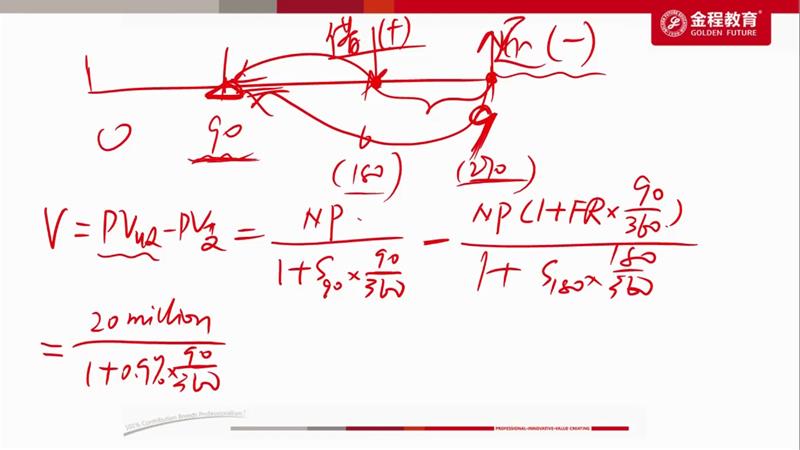 金程教育
GOLDEN FUTURE
借 (+)
还 (-)
0
90
(180)
(270)
V = PV收 - PV支 = NP / (1 + S90 × 90/360) - NP (1 + FR × 90/360) / (1 + S180 × 180/360)
= 20 million / (1 + 0.9% × 90/360)
100% Contribution Breeds Professionalism!
PROFESSIONAL·INNOVATIVE·VALUE CREATING